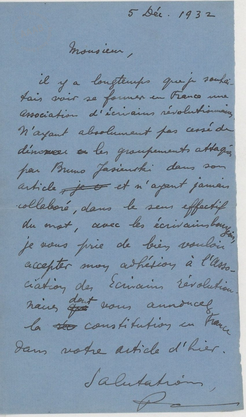 5 Déc. 1932
Monsieur,
il y a longtemps que je souhai-
tais voir se former en France une
association d'écrivains révolutionnaires.
N'ayant absolument pas cessé de
les groupements attaqués
par Bruno Jasienski dans son
article et n'ayant jamais
collaboré, dans le sens effectif
du mot, avec les écrivains bourgeois,
je vous prie de bien vouloir
accepter mon adhésion à l'Asso-
ciation des Ecrivains Révolution
naires dont vous annoncez
la constitution en France
dans votre article d'hier.
Salutations,